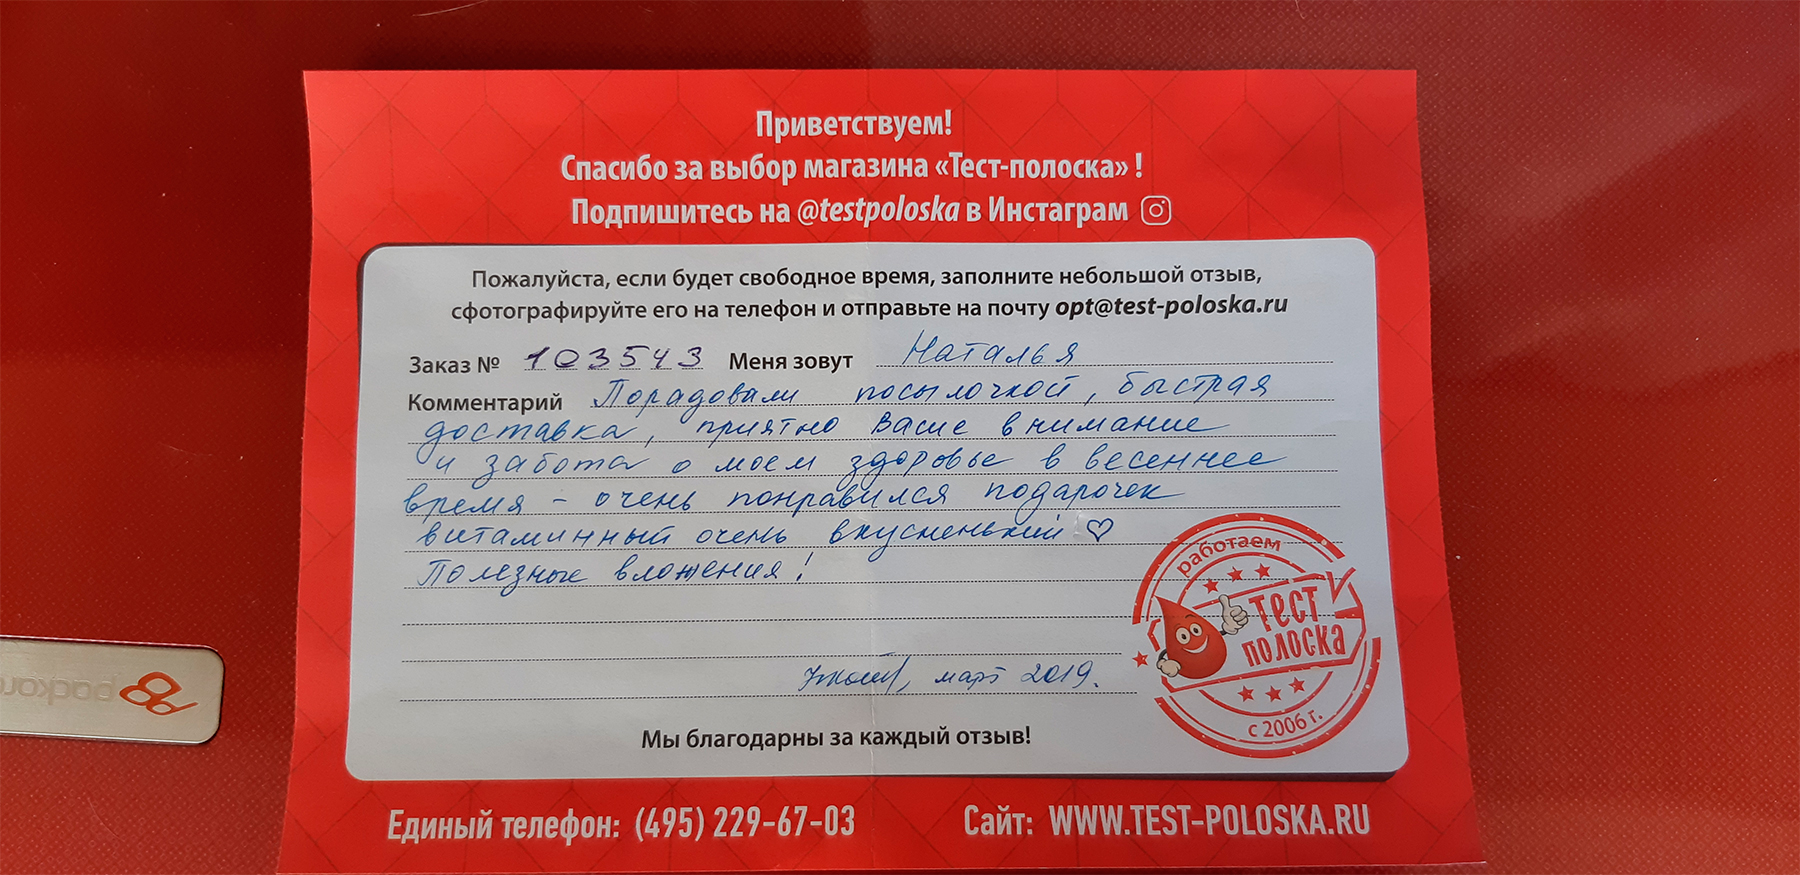 Приветствуем!
Спасибо за выбор магазина «Тест-полоска» !
Подпишитесь на @testpoloska в Инстаграм
Пожалуйста, если будет свободное время, заполните небольшой отзыв,
сфотографируйте его на телефон и отправьте на почту opt@test-poloska.ru
Заказ № 103543 Меня зовут Наталья
Комментарий Порадовали посылочкой, быстрая
доставка, приятно Ваше внимание
и забота о моем здоровье в весеннее
время - очень понравился подарочек
витаминный очень вкусненький ♡
Полезные вложения!
март 2019.
работаем
ТЕСТ
ПОЛОСКА
с 2006 г.
Мы благодарны за каждый отзыв!
Единый телефон: (495) 229-67-03 Сайт: WWW.TEST-POLOSKA.RU